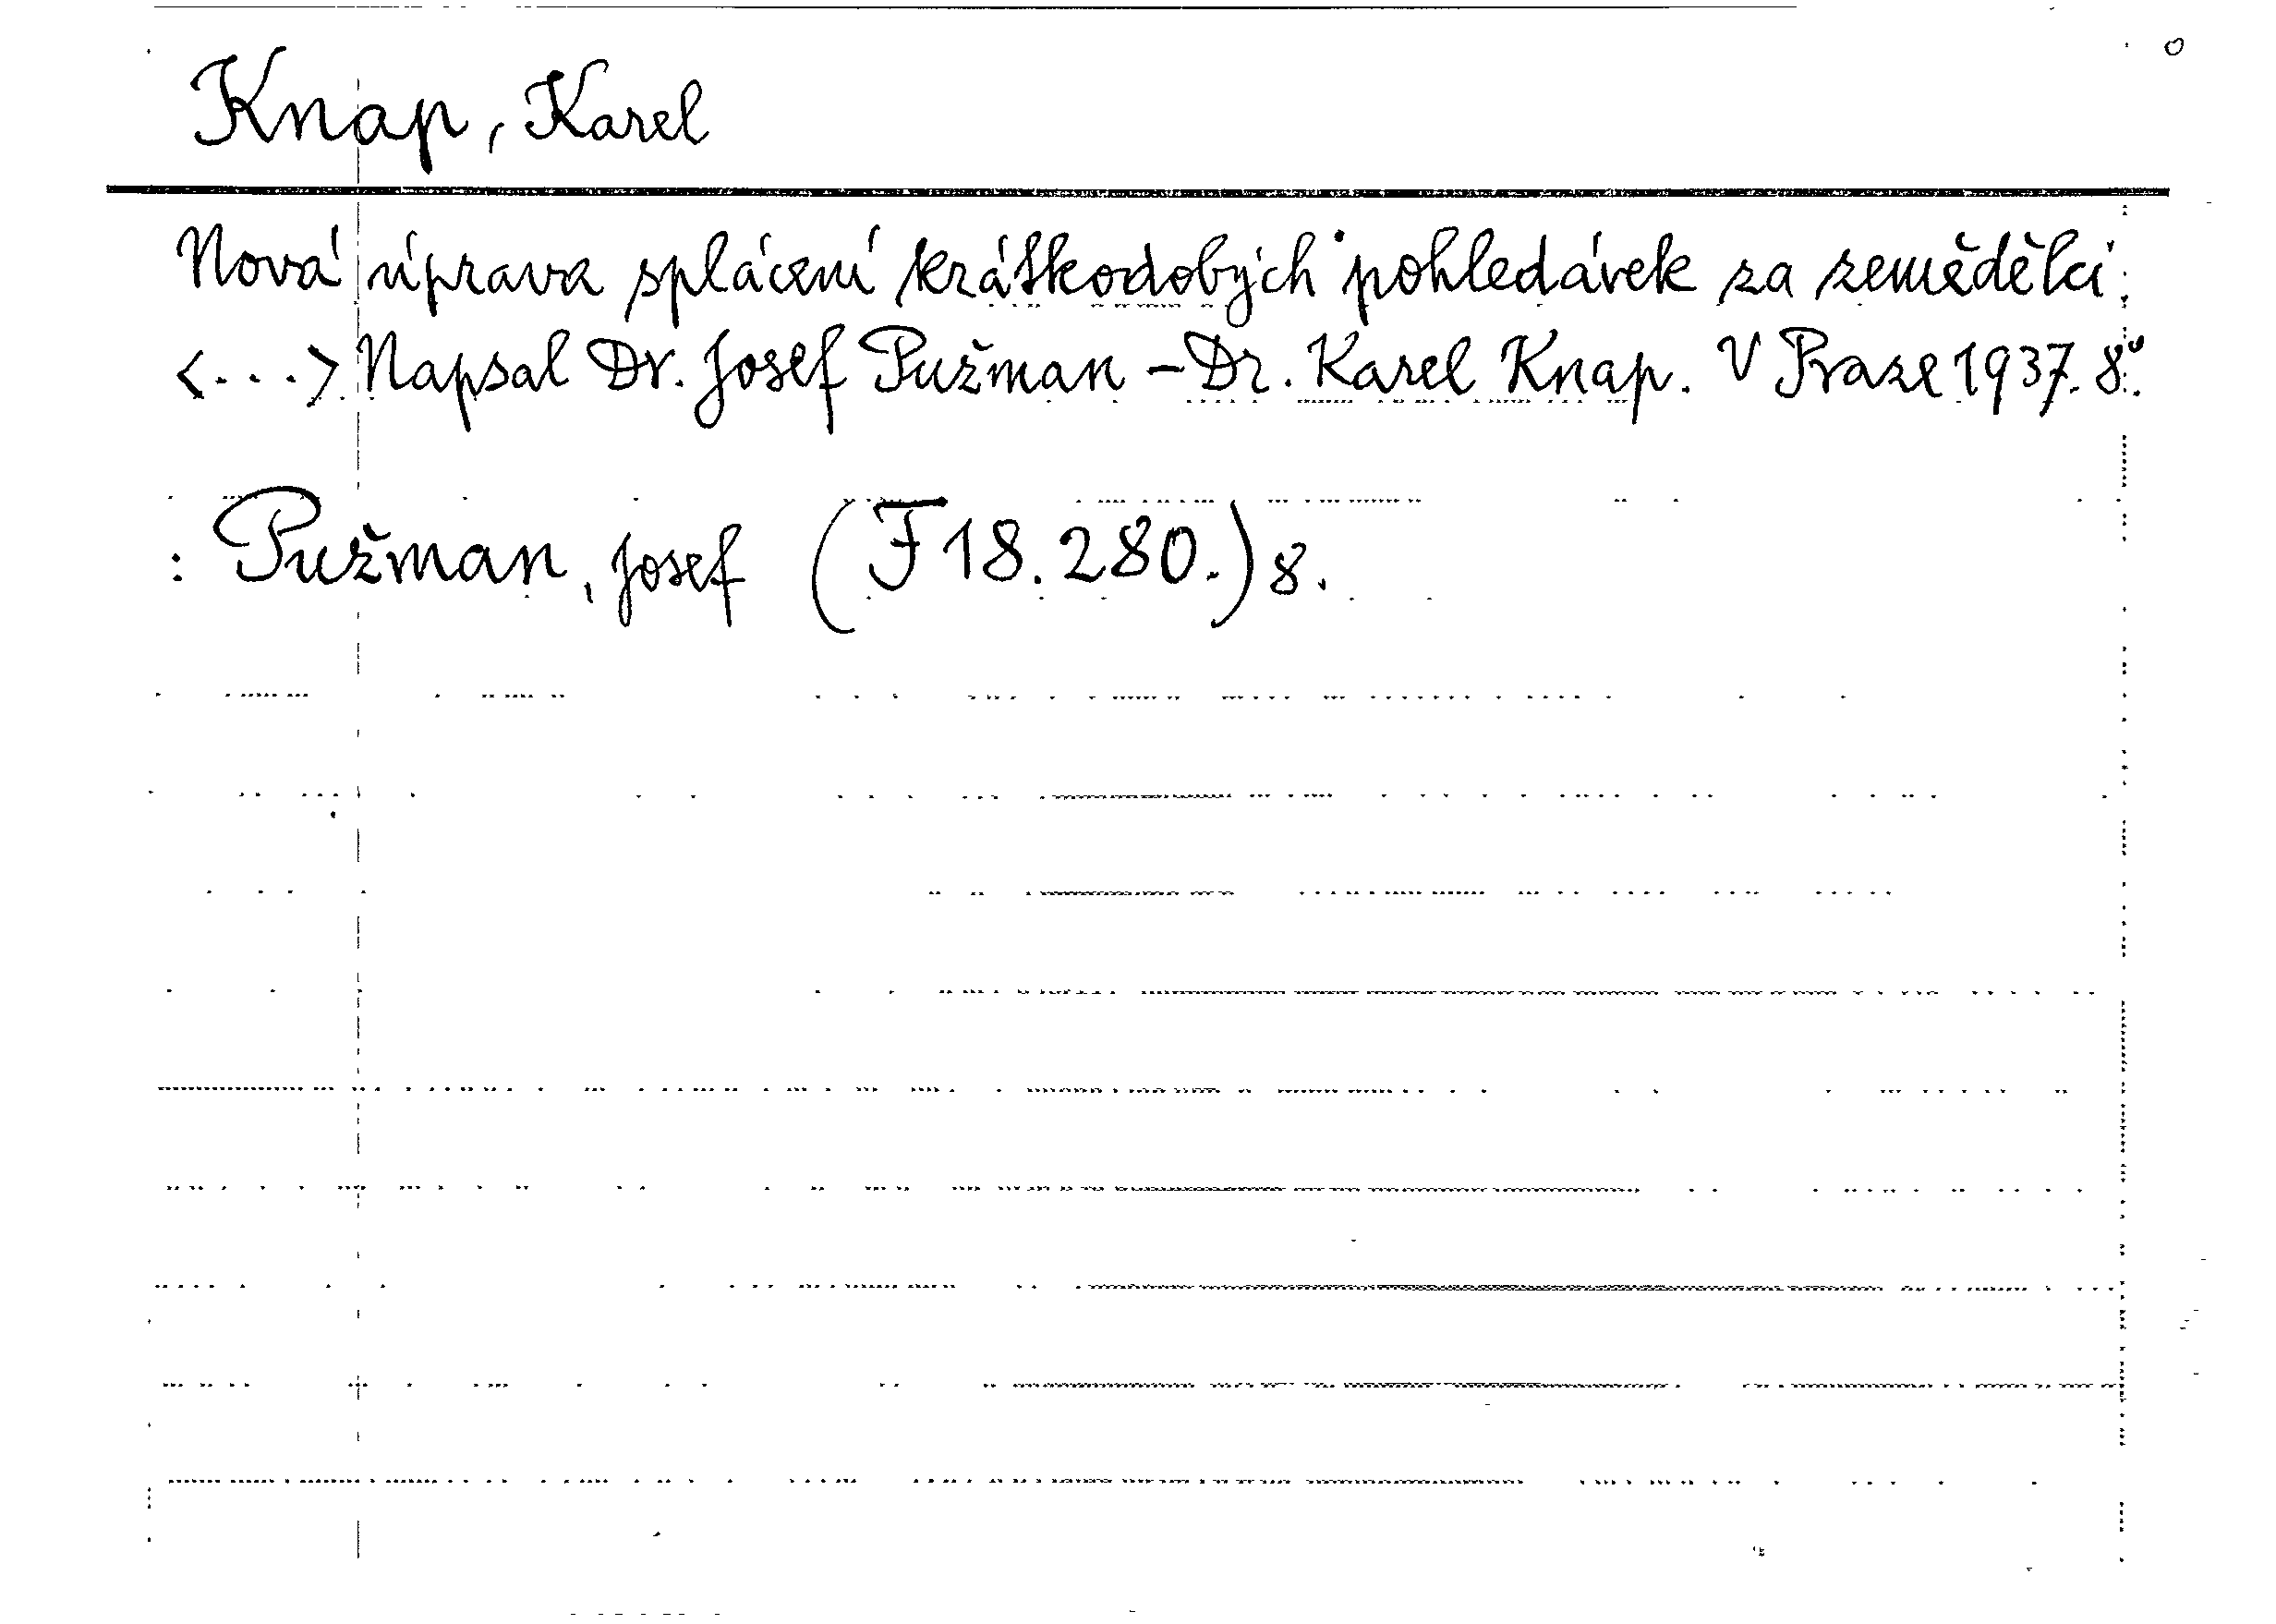 Knap, Karel
Nová úprava splácení krátkodobých pohledávek za zemědělci.
<...> Napsal Dr. Josef Pužman - Dr. Karel Knap. V Praze 1937. 8°.
: Pužman, Josef (F 18.280.) 8.